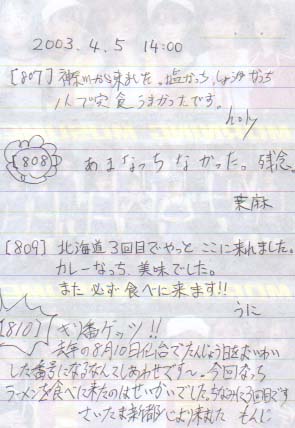 2003.4.5 14:00
[807] 神奈川から来ました。塩なっち、しょうゆなっち
2人で完食うまかったです。
holy
[808] あまなっちなかった。残念。
葉麻
[809] 北海道3回目でやっとここに来れました。
カレーなっち、美味でした。
また必ず食べに来ます!!
うに
[810] キリ番ゲッツ!!
去年の8月10日仙台でたんじょう日をおいわい
した番号になるなんてしあわせです〜。今回なっち
ラーメンを食べに来たのはせいかいでした。ちなみに3回目です
さいたま新都心より来ました もんじ